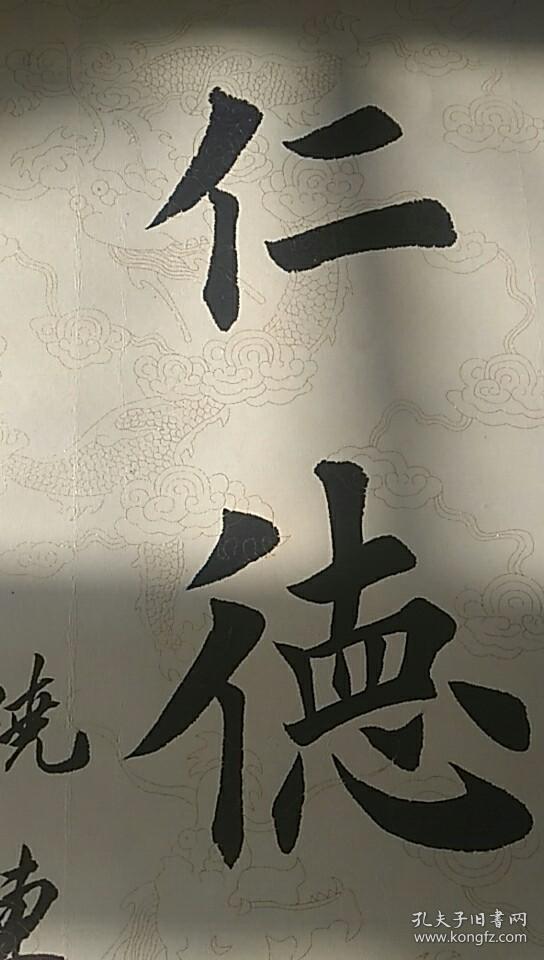 仁德
孔夫子旧书网
www.kongfz.com